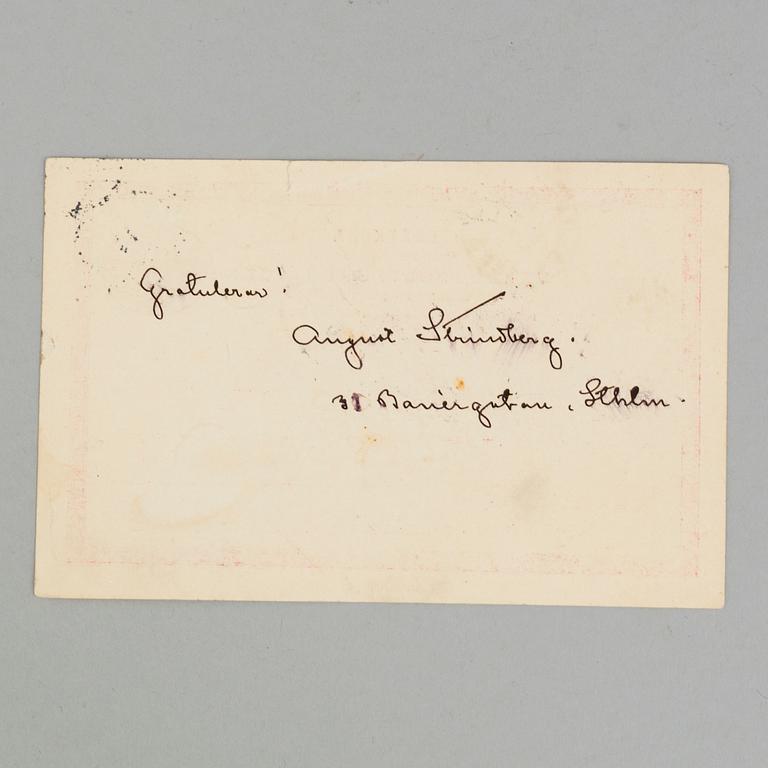 Gratulerar!
August Strindberg.
31 Banérgatan, Sthlm.